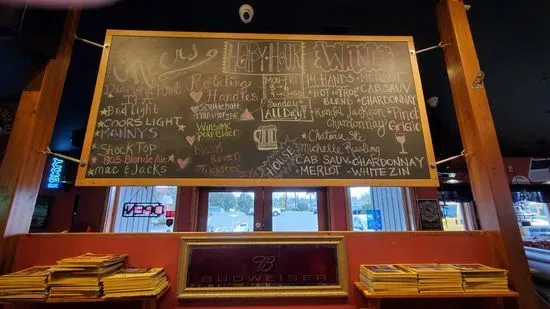 Beers
Dragons Pint
It?
Bud Light
Coors Light
Manny's
Shock Top
805 Blonde Ale
mac & Jacks
Rotating
Handles
Scuttlebutt
Winsome
pear cider
Black
Raven
Trickster
IPA
Happy Hour
Mon-Fri
Sunday
ALL Day!
Wine
14 Hands - Merlot
Cab Sauv
Hot to Trot
Blend
Chardonnay
Kendal Jackson
Chardonnay
Pinot
Grigio
Chateau Ste.
Michelle Riesling
House
Cab Sauv - Chardonnay
Merlot - White Zin
OPEN
B
BUDWEISER